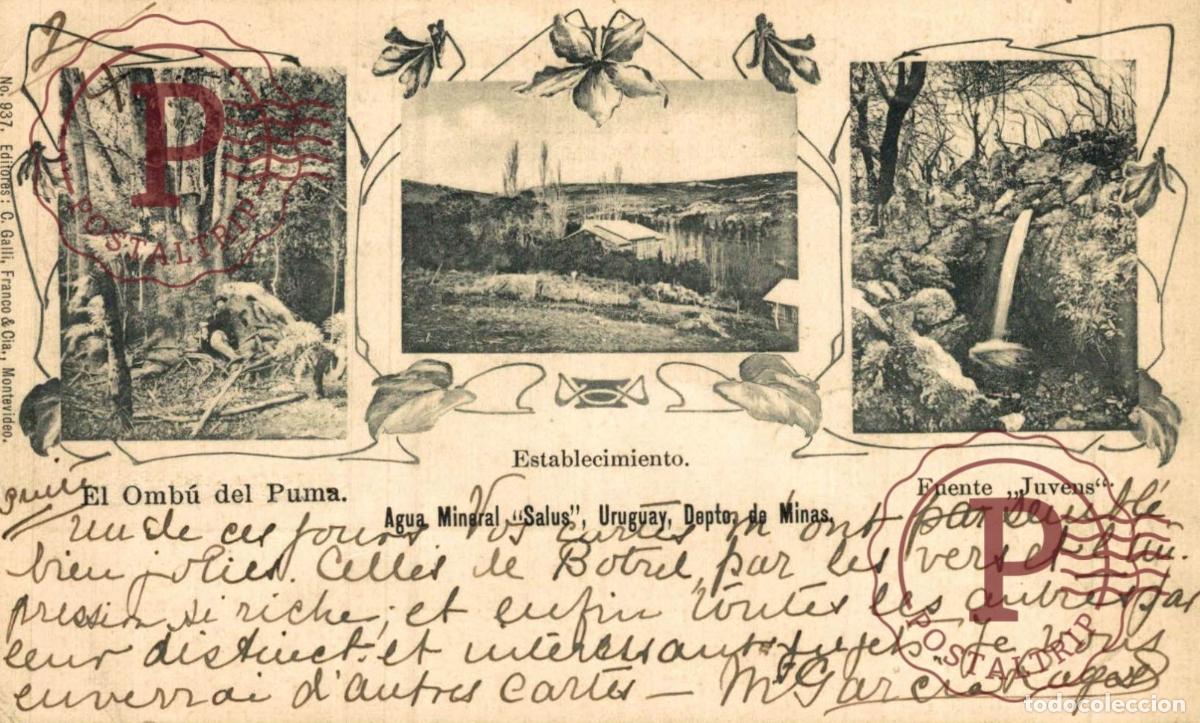 No. 937. Editores: C. Galli, Franco & Cia., Montevideo.
P
POSTALTRIP
El Ombú del Puma.
Establecimiento.
Fuente „Juvens“.
Agua Mineral „Salus”, Uruguay, Depto. de Minas.
un de ces jours Vos cartes m'ont par semblé
bien jolies. Celles de Botrel, par les vers et l'im
pression si riche; et enfin toutes les autres par
leur distinct et intéressants sujets. Je vous
enverrai d'autres cartes — M Garcia
P
POSTALTRIP
todocoleccion